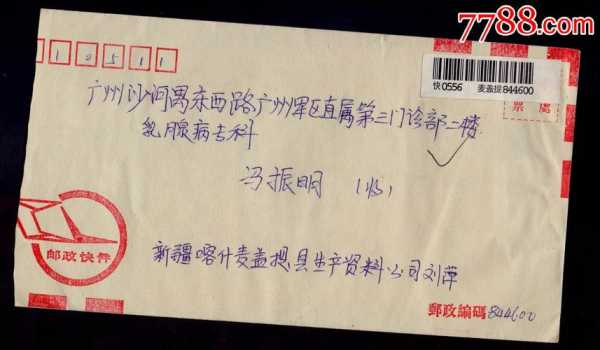 7788.com
中国收藏热线
快0556 麦盖提844600
广州沙河禺东西路广州军区直属第三门诊部二楼
乳腺病专科
冯振明 (收)
邮政快件
新疆喀什麦盖提县生产资料公司刘萍
郵政編碼 844600